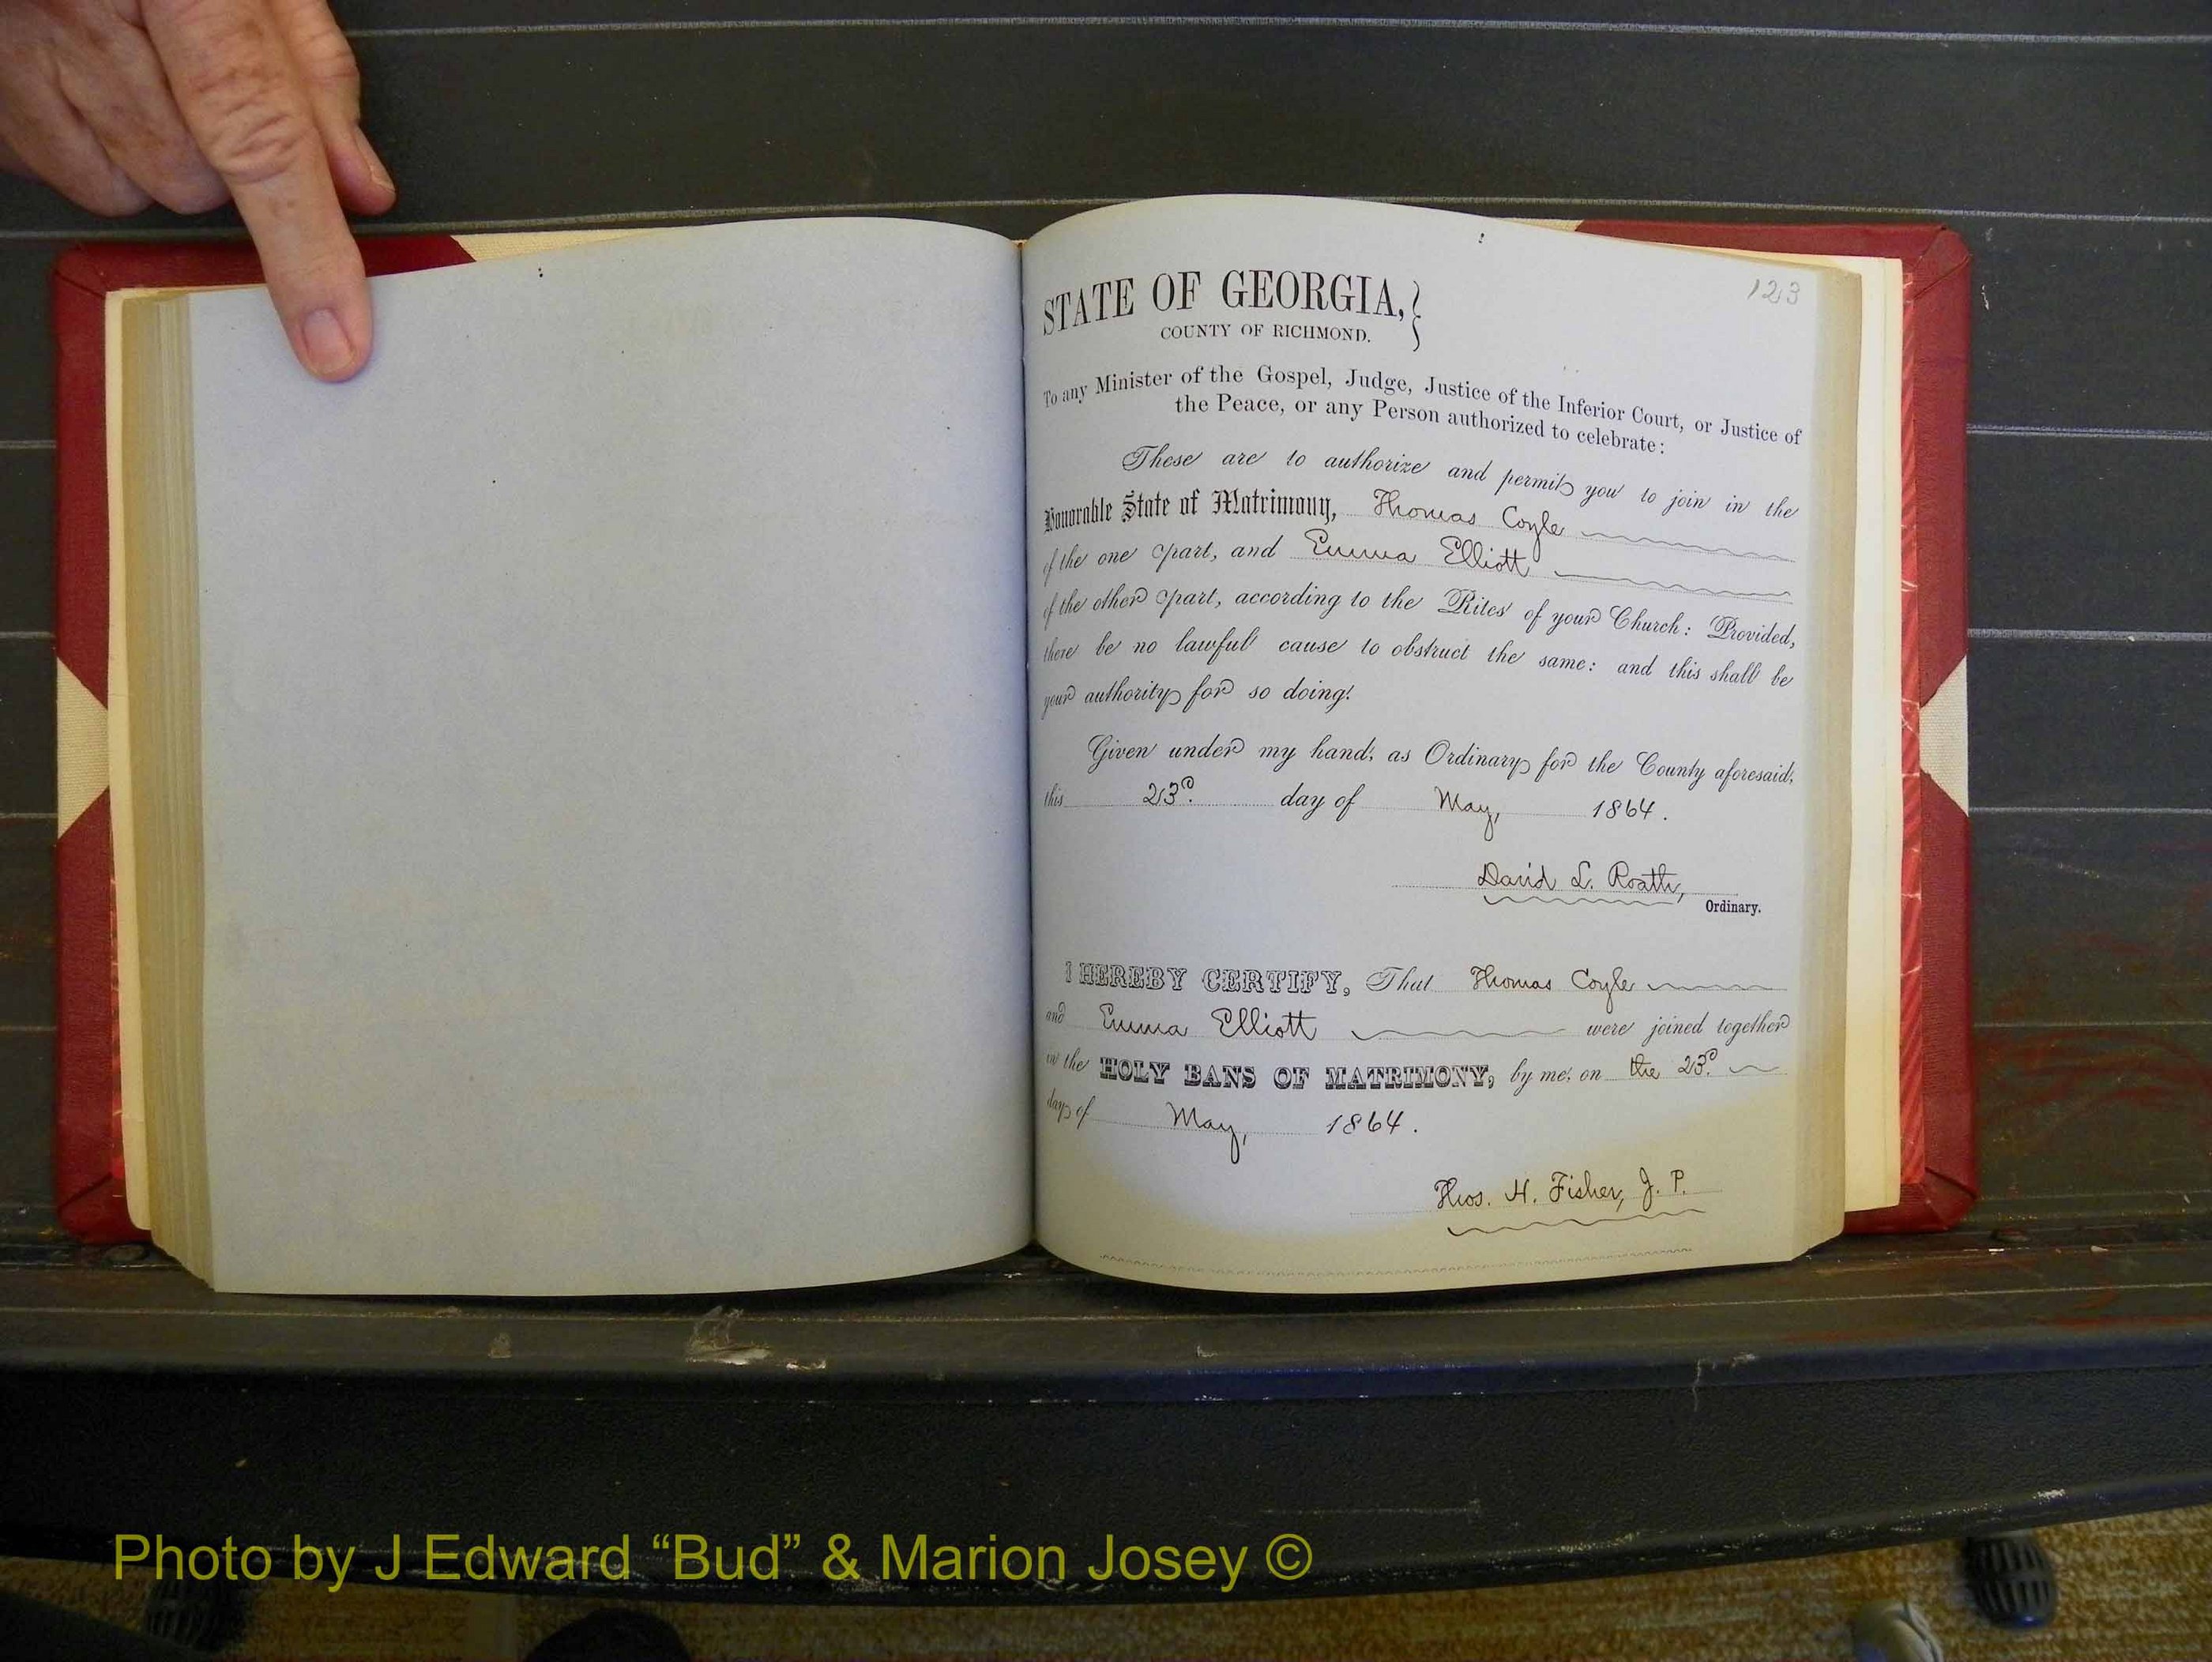 123
STATE OF GEORGIA,}
COUNTY OF RICHMOND.
To any Minister of the Gospel, Judge, Justice of the Inferior Court, or Justice of
the Peace, or any Person authorized to celebrate:
These are to authorize and permit you to join in the
Honorable State of Matrimony, Thomas Coyle
of the one part, and Emma Elliott
of the other part, according to the Rites of your Church: Provided,
there be no lawful cause to obstruct the same: and this shall be
your authority for so doing.
Given under my hand, as Ordinary for the County aforesaid,
this 23d. day of May, 1864.
David L. Roath,
Ordinary.
I HEREBY CERTIFY, That Thomas Coyle
and Emma Elliott were joined together
in the HOLY BANS OF MATRIMONY, by me, on the 23d.
day of May, 1864.
Thos. H. Fisher, J. P.
Photo by J Edward “Bud” & Marion Josey ©